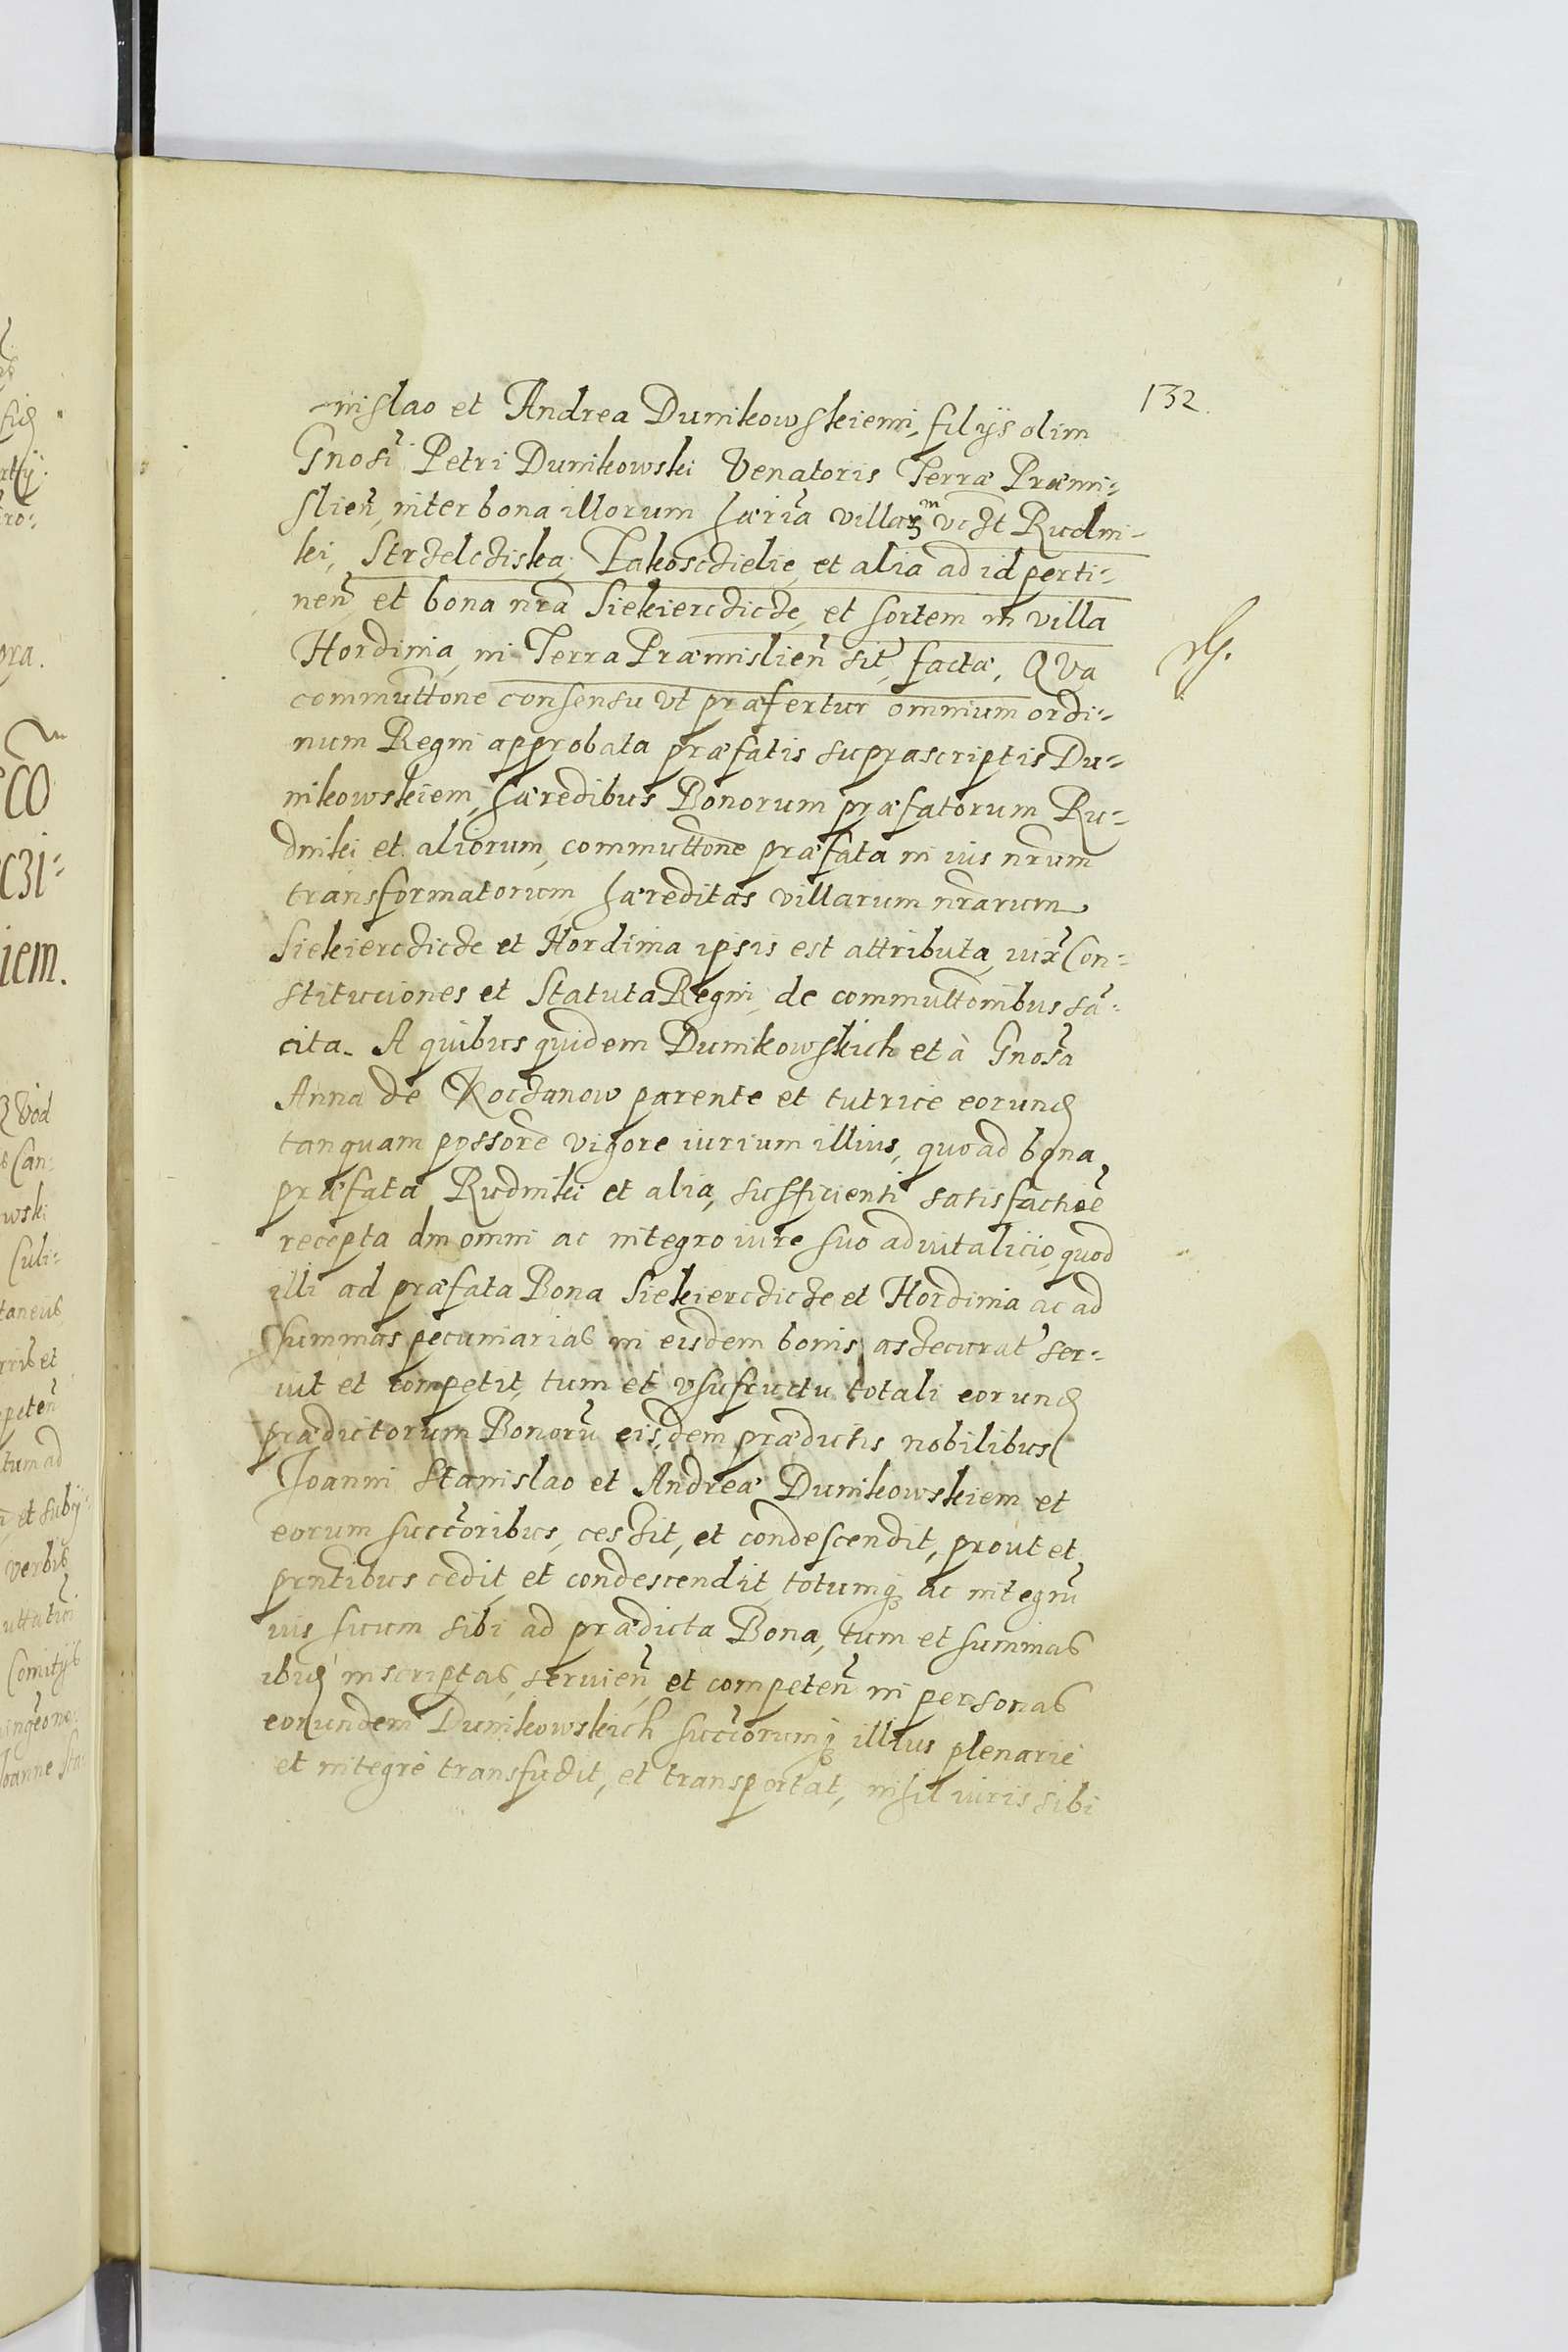 132.
-nislao et Andrea Dunikowskiemi, filijs olim
Gnosi Petri Dunikowski Venatoris Terræ Præmi-
slien, inter bona illorum hæria villam vczt Rudni-
ki, Strzelcziska, Pakosczielie, et alia ad id perti-
nen et bona nra Siekierczicze, et sortem in villa
Hordinia, in Terra Præmislien sit, facta, QVa
commuttone consensu vt præfertur omnium ordi-
num Regni approbata præfatis suprascriptis Du-
nikowskiem, hæredibus Bonorum præfatorum Ru-
dniki et aliorum, commuttone præfata in ius nrum
transformatorum hæreditas villarum nrarum
Siekierczicze et Hordinia ipsis est attributa, iux Con-
stituciones et Statuta Regni, de commuttonibus sã-
cita. A quibus quidem Dunikowskich et à Gnosa
Anna de Koczanow parente et tutrice eorund
tanquam possore vigore iurium illius, quoad bona
præfata Rudniki et alia, sufficienti satisfactioe
recepta dm omni ac integro iure suo aduitalicio, quod
illi ad præfata Bona Siekierczicze et Hordinia ac ad
summas pecuniarias in eisdem bonis aszecurat ser-
uit et competit, tum et vsufructu totali eorund
prædictorum Bonorũ eisdem prædictis nobilibus
Joanni Stanislao et Andreæ Dunikowskiem et
eorum succoribus, ceszit, et condescendit, prout et
prntibus cedit et condescendit totumq ac integrũ
ius suum sibi ad prædicta Bona, tum et summas
ibid inscriptas, seruien et competen in personas
eorundem Dunikowskich succorumq illius plenarie
et integre transfudit, et transportat, nihil iuris sibi